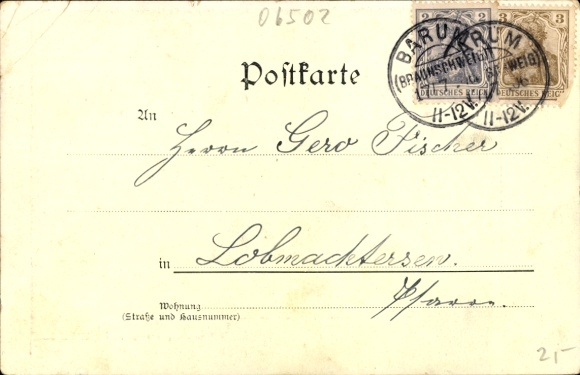 06502
2 2 3 3
BARUM BARUM
(BRAUNSCHWEIG)
DEUTSCHES REICH DEUTSCHES REICH
11-12V. 11-12V.
Postkarte
An
Herrn Gero Fischer
in Lobmachtersen.
Pfarre.
Wohnung
(Straße und Hausnummer)
2,-